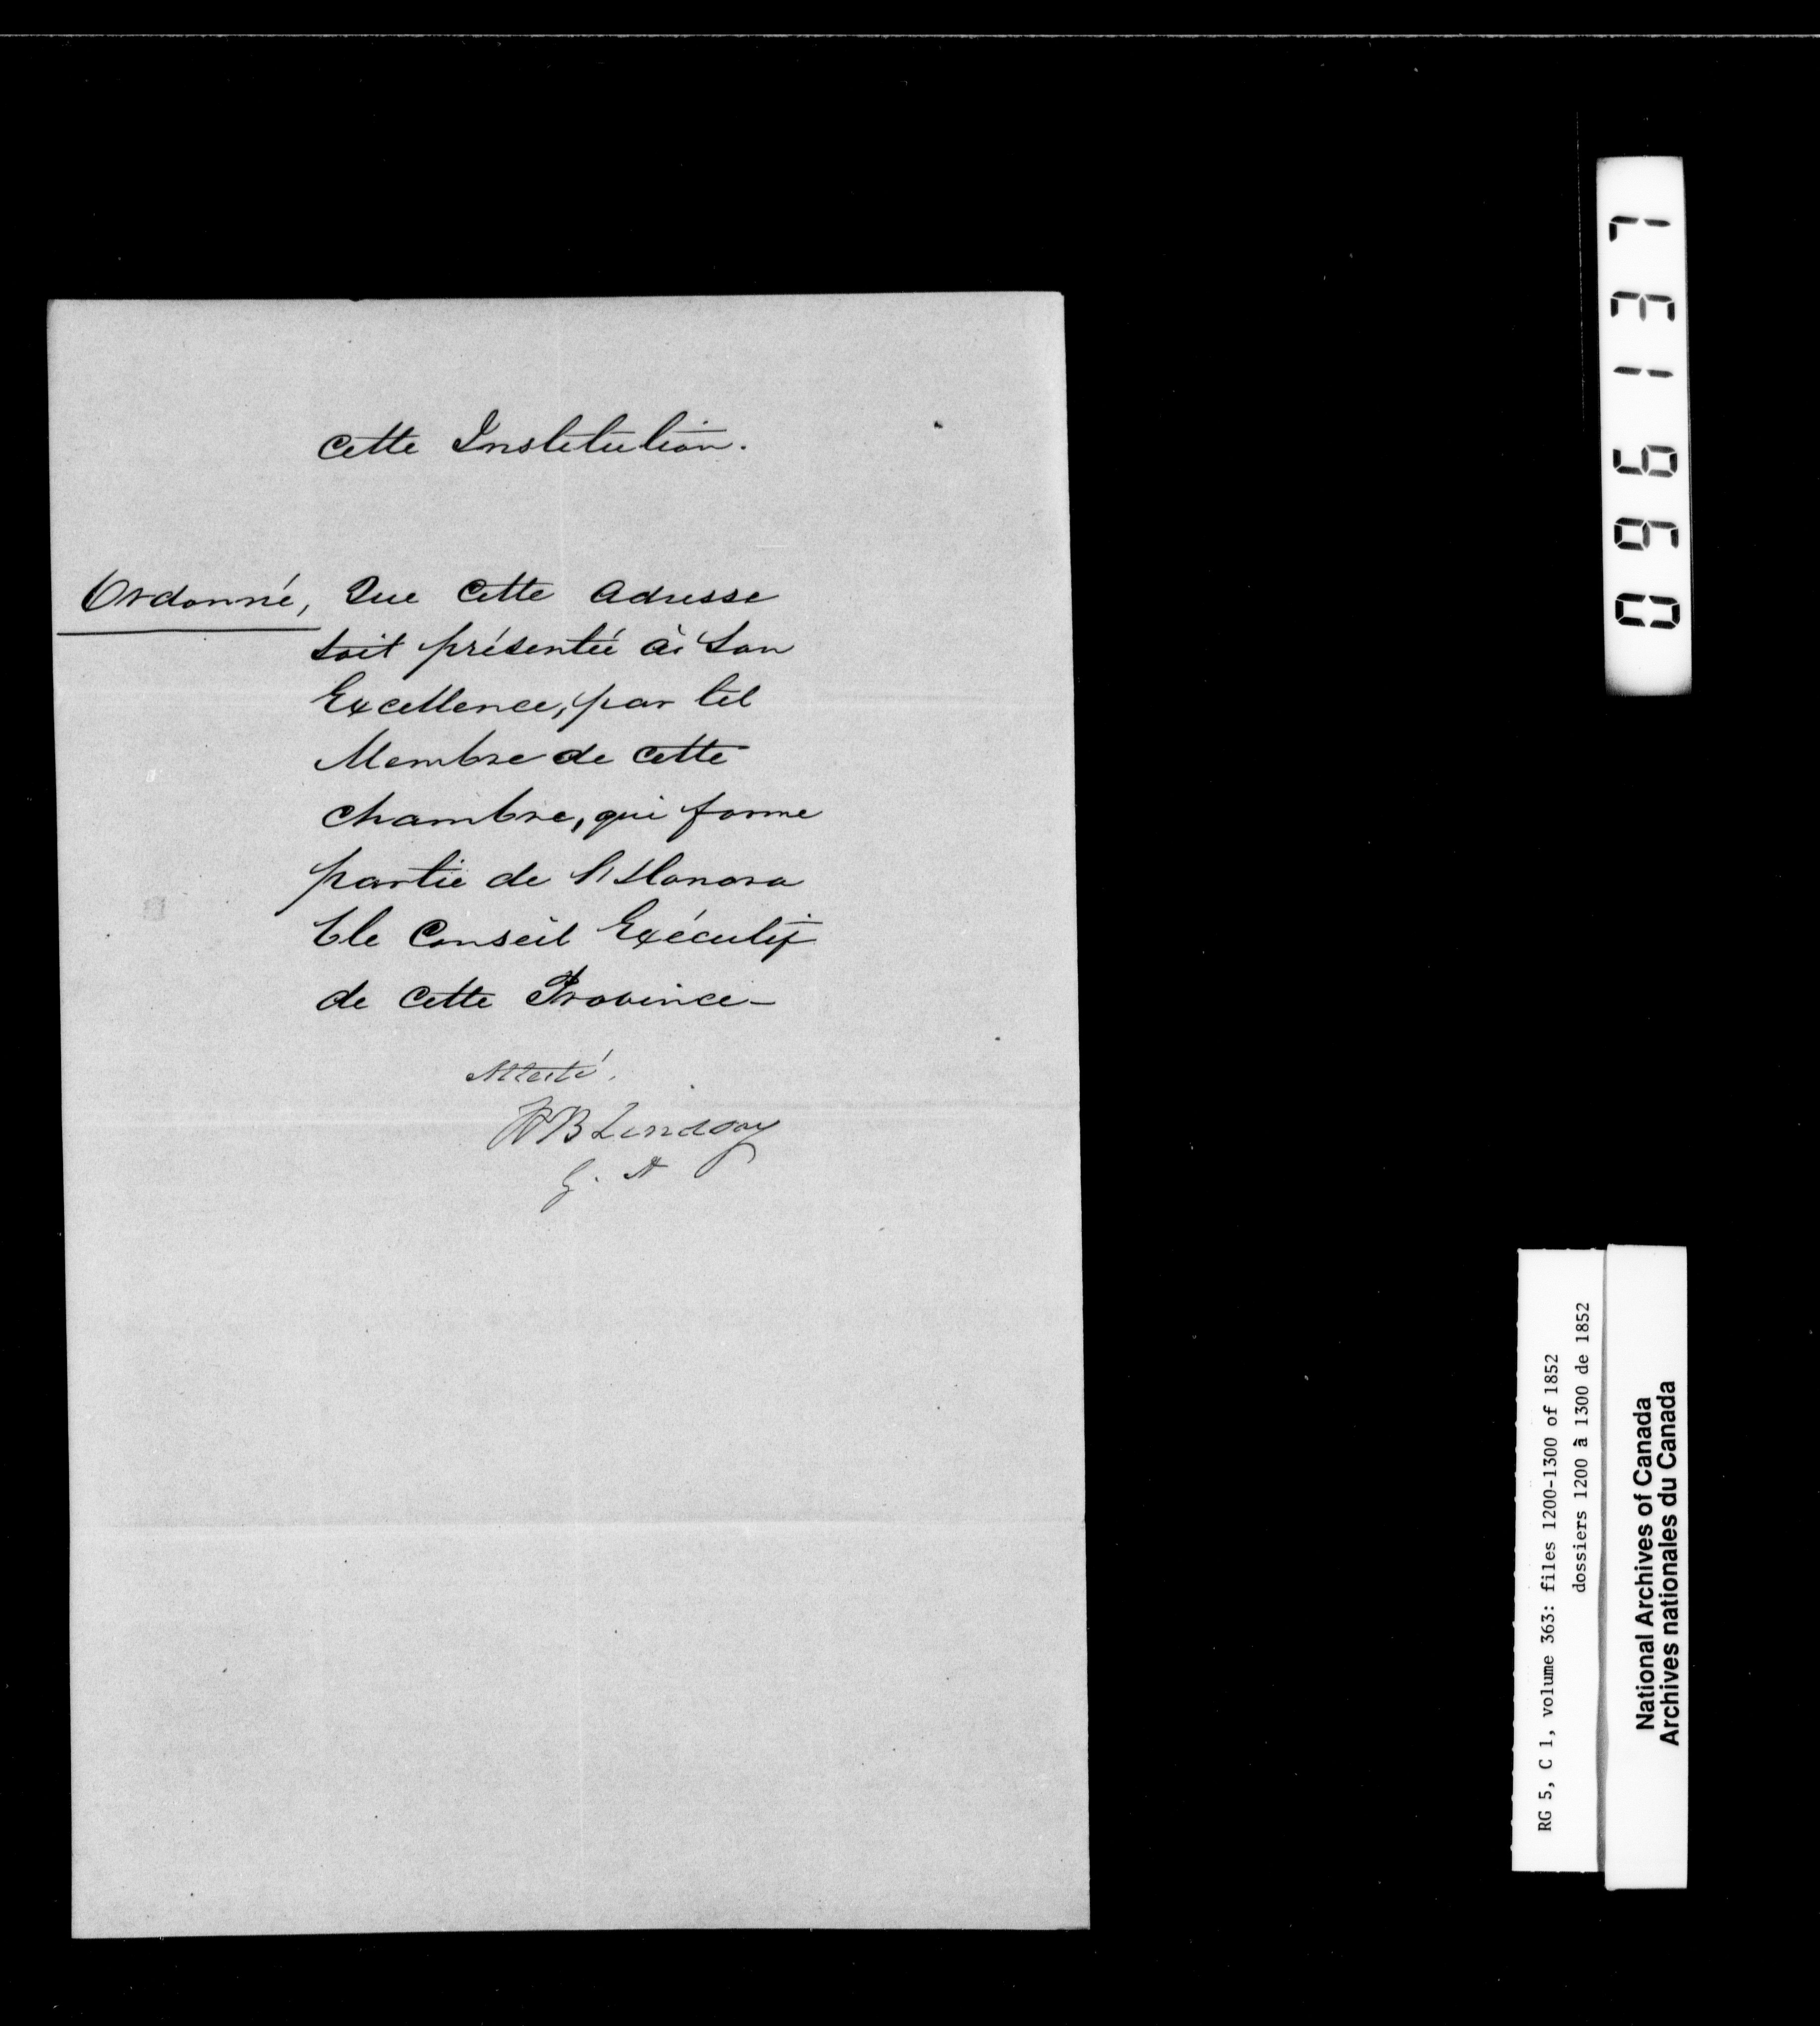 cette Institution.
Ordonné, Que cette adresse
soit présentée à Son
Excellence, par tel
Membre de cette
chambre, qui forme
partie de l'Honora
ble Conseil Exécutif
de cette Province—
Attesté.
WB Lindsay
G. A
096137
RG 5, C 1, volume 363: files 1200-1300 of 1852
dossiers 1200 à 1300 de 1852
National Archives of Canada
Archives nationales du Canada